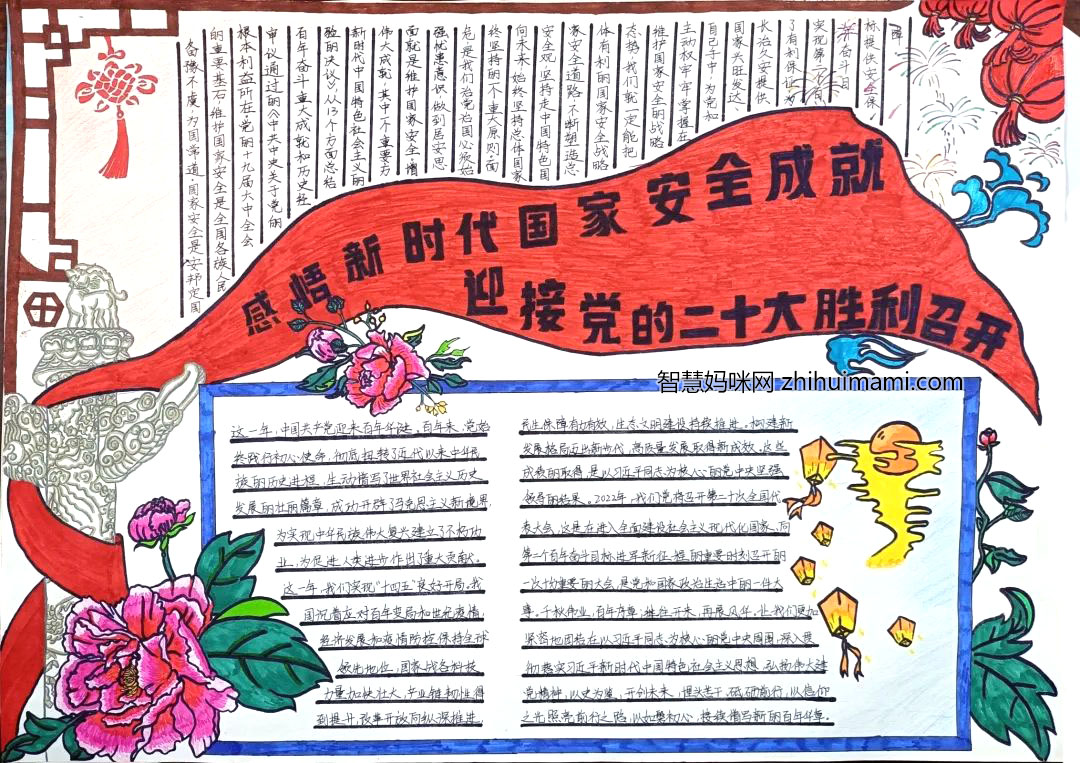 感悟新时代国家安全成就
迎接党的二十大胜利召开
备豫不虞,为国常道。国家安全是安邦定国
的重要基石,维护国家安全是全国各族人民
根本利益所在。党的十九届六中全会
审议通过的《中共中央关于党的
百年奋斗重大成就和历史经
验的决议》,从13个方面总结
新时代中国特色社会主义的
伟大成就,其中一个重要方
面就是维护国家安全。增
强忧患意识,做到居安思
危,是我们治党治国必须始
终坚持的一个重大原则。面
向未来,始终坚持总体国家
安全观,坚持走中国特色国
家安全道路,不断塑造总
体有利的国家安全战略
态势,我们就一定能把
维护国家安全的战略
主动权牢牢掌握在
自己手中,为党和
国家兴旺发达
长治久安提供
了有利保证,为
实现第二个百
奋斗目
标提供安全保
障
智慧妈咪网 zhihuimami.com
这一年,中国共产党迎来百年华诞。百年来,党始
终践行初心使命,彻底扭转了近代以来中华民
族的历史进程,生动谱写了世界社会主义历史
发展的壮丽篇章,成功开辟了马克思主义新境界,
为实现中华民族伟大复兴建立了不朽功
业,为促进人类进步作出了重大贡献。
这一年,我们实现“十四五”良好开局。我
国沉着应对百年变局和世纪疫情,
经济发展和疫情防控保持全球
领先地位,国家战略科技
力量加快壮大,产业链韧性得
到提升,改革开放向纵深推进,
民生保障有力有效,生态文明建设持续推进。构建新
发展格局迈出新步伐,高质量发展取得新成效。这些
成绩的取得,是以习近平同志为核心的党中央坚强
领导的结果。2022年,我们党将召开第二十次全国代
表大会,这是在进入全面建设社会主义现代化国家、向
第二个百年奋斗目标进军新征程的重要时刻召开的
一次十分重要的大会,是党和国家政治生活中的一件大
事。千秋伟业,百年序章,继往开来,再展风华。让我们更加
紧密地团结在以习近平同志为核心的党中央周围,深入贯
彻落实习近平新时代中国特色社会主义思想,弘扬伟大建
党精神,以史为鉴、开创未来,埋头苦干、砥砺前行,以信仰
之光照亮前行之路,以如磐初心,接续谱写新的百年华章。